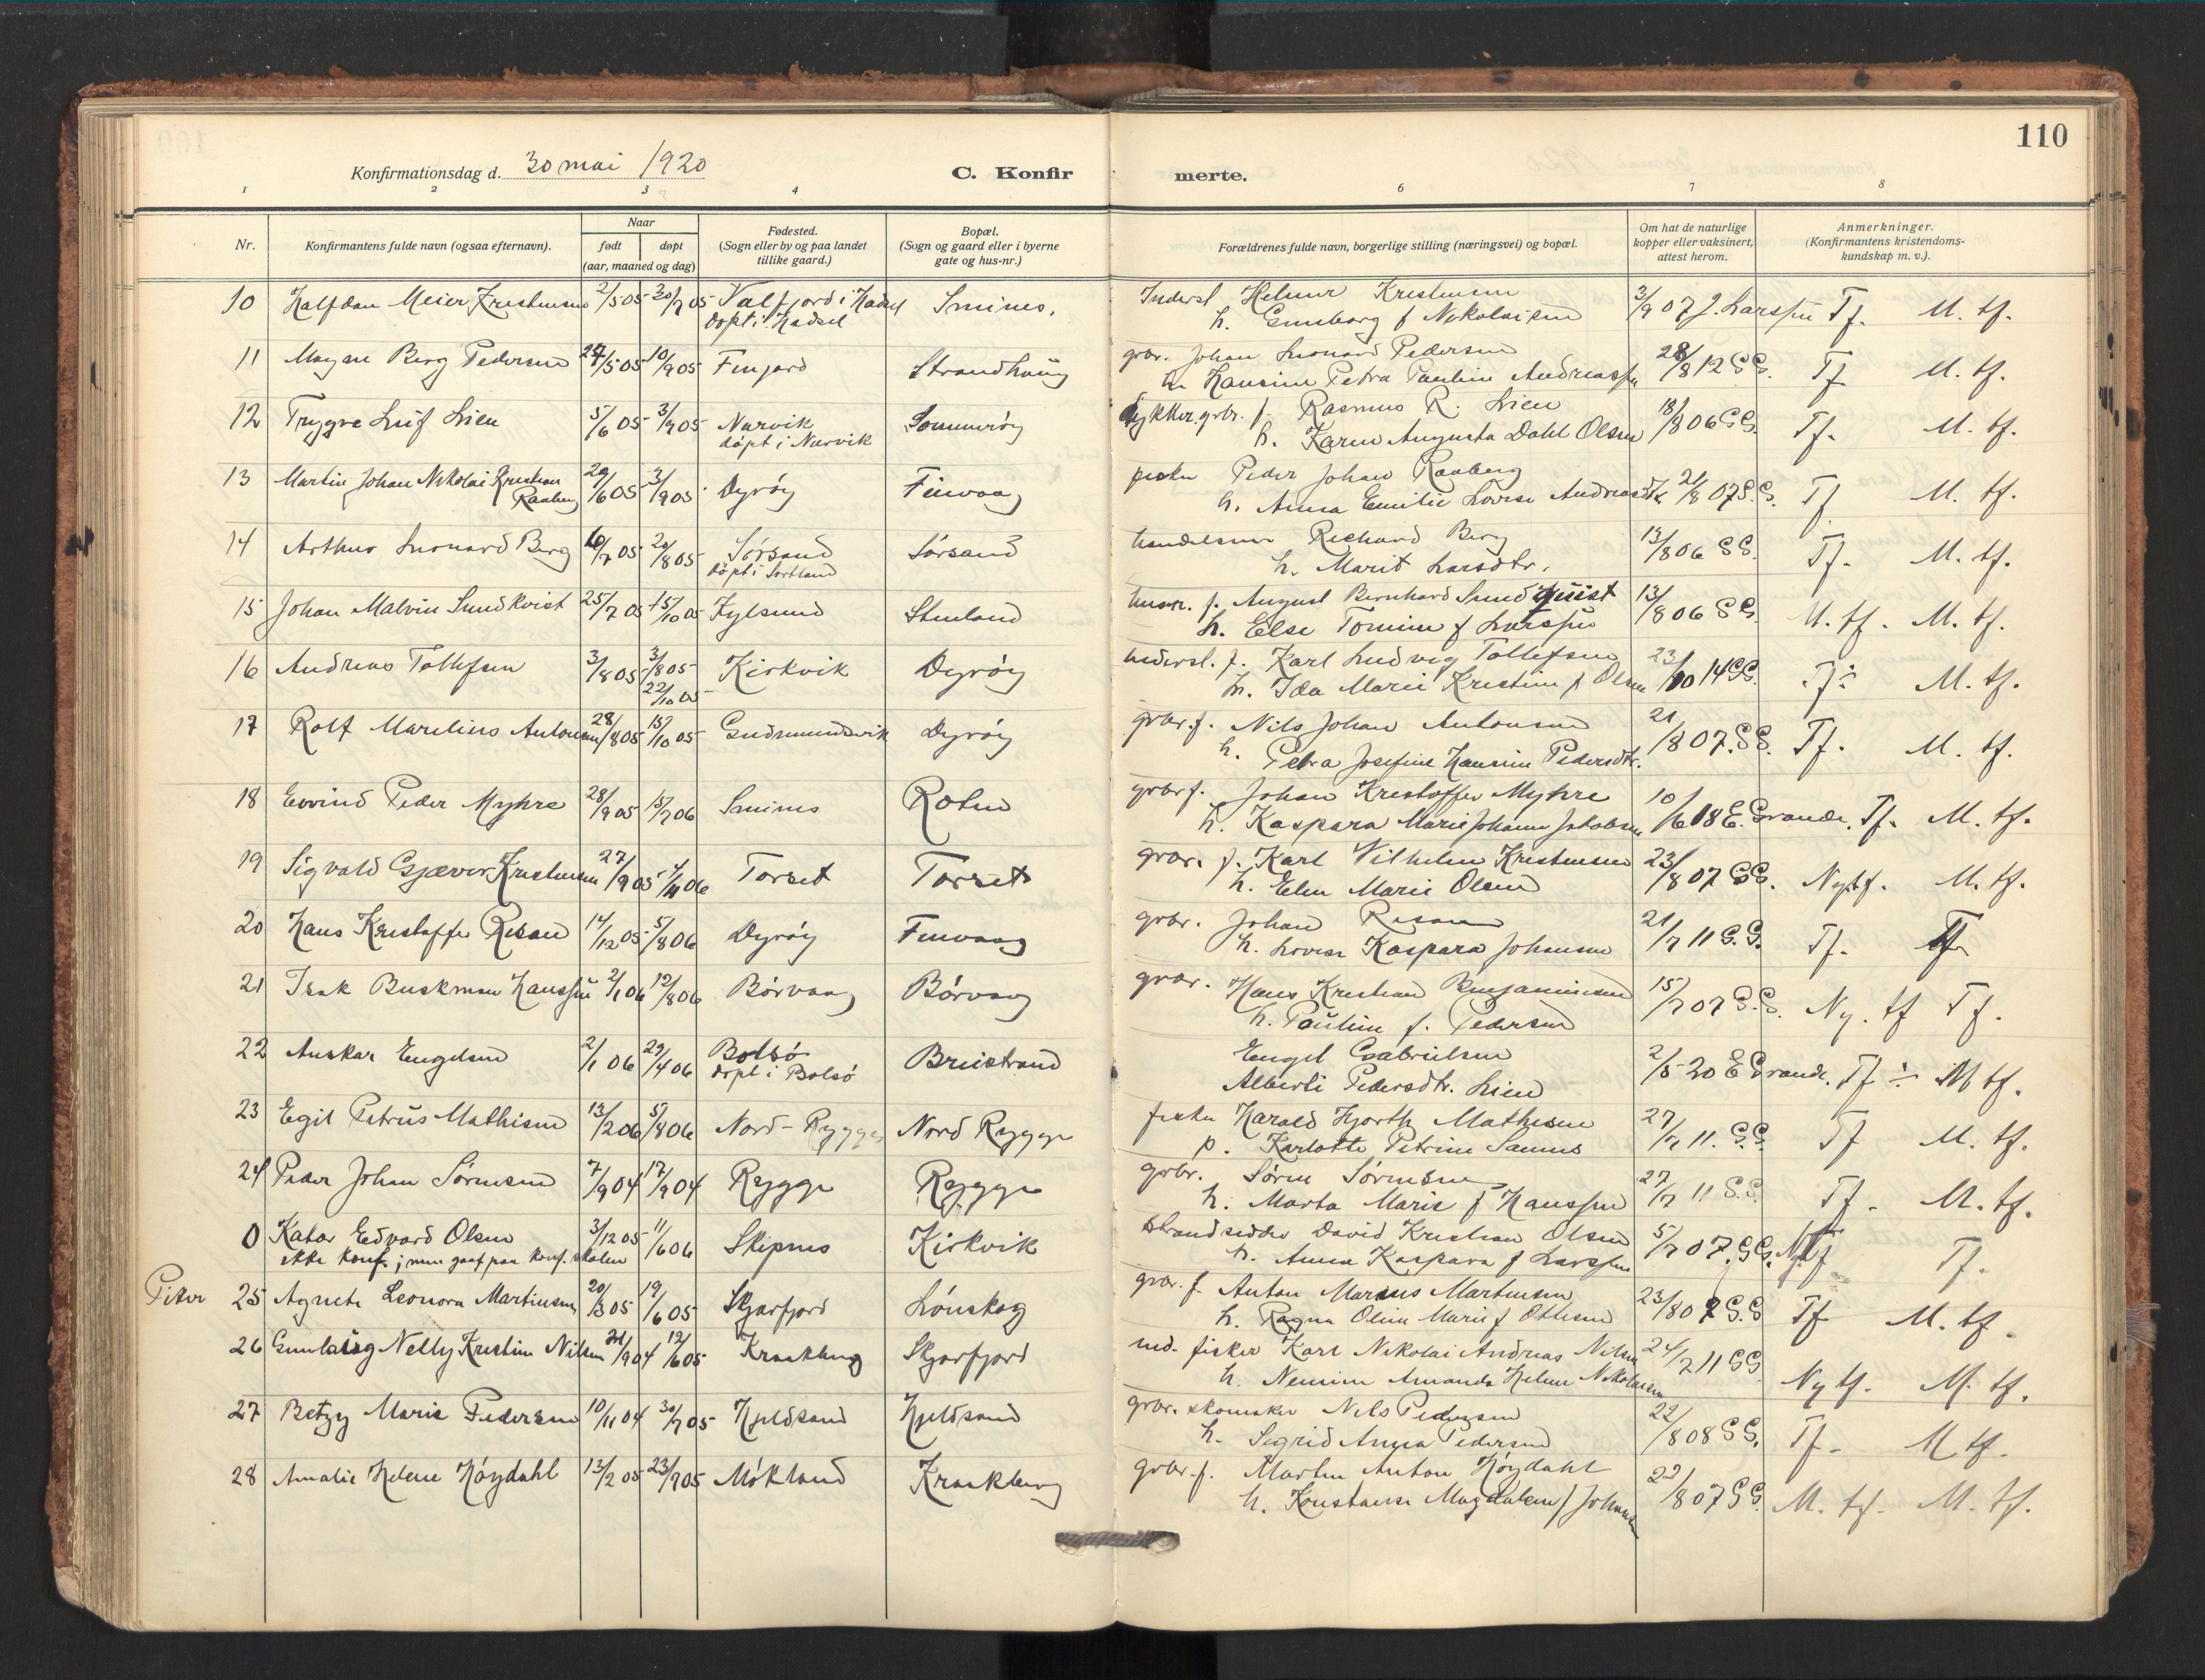 110
Konfirmationsdag d. 30 mai 1920
C. Konfirmerte.
1 2 3 4 6 7 8
Nr.
Konfirmantens fulde navn (ogsaa efternavn).
Naar
født
døpt
(aar, maaned og dag)
Fødested.
(Sogn eller by og paa landet
tillike gaard.)
Bopæl.
(Sogn og gaard eller i byerne
gate og hus-nr.)
Forældrenes fulde navn, borgerlige stilling (næringsvei) og bopæl.
Om hat de naturlige
kopper eller vaksinert,
attest herom.
Anmerkninger.
(Konfirmantens kristendoms-
kundskap m. v.).
10 Halfdan Meier Kristensen 2/5 05 30/7 05 Valfjord i Hadsel Smines.
døpt i Hadsel
Inderst Helmer Kristensen 3/9 07 J. Larssen Tf. M. tf.
h. Gunborg f Nikolaisen
11 Magne Berg Pedersen 27/5 05 10/9 05 Finjord Strandhaug
gbr. Johan Leonard Pedersen 28/8 12 SS. Tf M. tf.
h. Hansine Petra Pauline Andreassen
12 Trygve Leif Lien 5/6 05 3/9 05 Narvik Sommerøy
døpt i Narvik
grbr. f. Rasmus R. Lien 18/8 06 SS. Tf. M. tf.
h. Karen Augusta Dahl Olsen
13 Martin Johan Nikolai Kristian 29/6 05 3/9 05 Dyrøy Finvaag
Raaberg
fisker Peder Johan Raaberg 21/8 07 S.S. Tf M. tf.
h. Anna Emilie Lovise Andreasdtr.
14 Arthur Leonard Berg 10/7 05 20/8 05 Sørsand Sørsand
døpt i Sortland
handelsmn Richard Berg 13/8 06 SS. Tf. M. tf.
h. Marit Larsdtr.
15 Johan Malvin Sundkvist 25/7 05 15/10 05 Kylsund Stenland
husm. f. August Bernhard Sundquist 13/8 06 SS. M. tf. M. tf.
h. Else Tomine f Larssen
16 Andreas Tollefsen 3/8 05 3/8 05 Kirkvik Dyrøy
22/10 05
inderst. f. Karl Ludvig Tollefsen 23/10 14 SS. Tf÷ M. tf.
h. Ida Marie Kristine f Olsen
17 Rolf Marelius Antonsen 28/8 05 15/10 05 Gudmundsvik Dyrøy
grbr. f. Nils Johan Antonsen 21/8 07. SS. Tf. M. tf.
h. Petra Josefine Hansine Pedersdtr.
18 Eivind Peder Myhre 28/9 05 15/7 06 Smines Roten
grbr f. Johan Kristoffer Myhre 10/6 18 E. Grande. Tf. M. tf.
h. Kaspara Marie Johanne Jakobsen
19 Sigvald Gjæver Kristensen 27/9 05 Torset Torset
grbr. f. Karl Vilhelm Kristensen 23/8 07 SS. Ny tf. M. tf.
h. Elen Marie Olsen
20 Hans Kristoffer Resan 14/12 05 5/8 06 Dyrøy Finvaag
grbr. Johan Resan 21/7 11 S.S. Tf. Tf
h. Lovise Kaspara Johansen
21 Isak Buckman Hanssen 2/1 06 12/8 06 Børvaag Børvaag
grbr. Hans Kristian Benjaminsen 15/7 07 S.S. Ny. tf Tf.
h. Pauline f. Pedersen
22 Anskar Engelsen 2/1 06 29/4 06 Bolsø Breistrand
døpt i Bolsø
Engel Gabrielsen 2/5 20 E Grande. Tf ÷ M tf.
Alberti Pedersdtr. Lien
23 Egil Petrus Mathisen 13/2 06 5/8 06 Nord-Rygge Nord Rygge
fisker Harald Hjorth Mathisen 27/7 11. S.S. Tf M. tf.
p. Karlotte Petrine Sannes
24 Peder Johan Sørensen 7/9 04 17/9 04 Rygge Rygge
grbr. Søren Sørensen 27/7 11 S.S. Tf. M. tf.
h. Marta Marie f Hanssen
0 Kator Edvard Olsen 3/12 05 11/6 06 Skipnes Kirkvik
ikke konf.; men gaat paa konf. skolen
Strandsidder David Kristian Olsen 5/7 07. SS. Tf.
h. Anna Kaspara f Larssen
Piker
25 Agnete Leonora Martinsen 20/3 05 19/6 05 Skjørfjord Lønskog
grbr. f. Anton Marius Martinsen 23/8 07 S.S Tf M. tf.
h. Ragna Oline Marie f Ottesen
26 Gunlaug Nelly Kristine Nilsen 21/9 04 12/6 05 Kraakberg Skjørfjord
ind. fisker Karl Nikolai Andreas Nilsen 24/7 11 SS. Ny tf. M. tf.
h. Nennine Amanda Helene Nikolaisen
27 Betzy Marie Pedersen 10/11 04 30/7 05 Kjeldsand Kjeldsand
grbr. skomaker Nils Pedersen 22/8 08 SS. Tf. M tf.
h. Sigrid Anna Pedersen
28 Amalie Helene Høydahl 13/2 05 23/7 05 Møkland Kraakberg
grbr. f. Martin Anton Høydahl 22/8 07 SS. M. tf. M. tf.
h. Konstanse Magdalene f Johansen